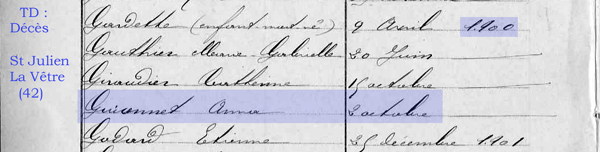 TD :
Décès
St Julien
La Vêtre
(42)
Gardette (enfant mort né) 9 Avril 1900
Gauthier Marie Gabrielle 20 Juin
Giraudier Catherine 15 octobre
Guionnet Anna 2 octobre
Godard Etienne 25 décembre 1901